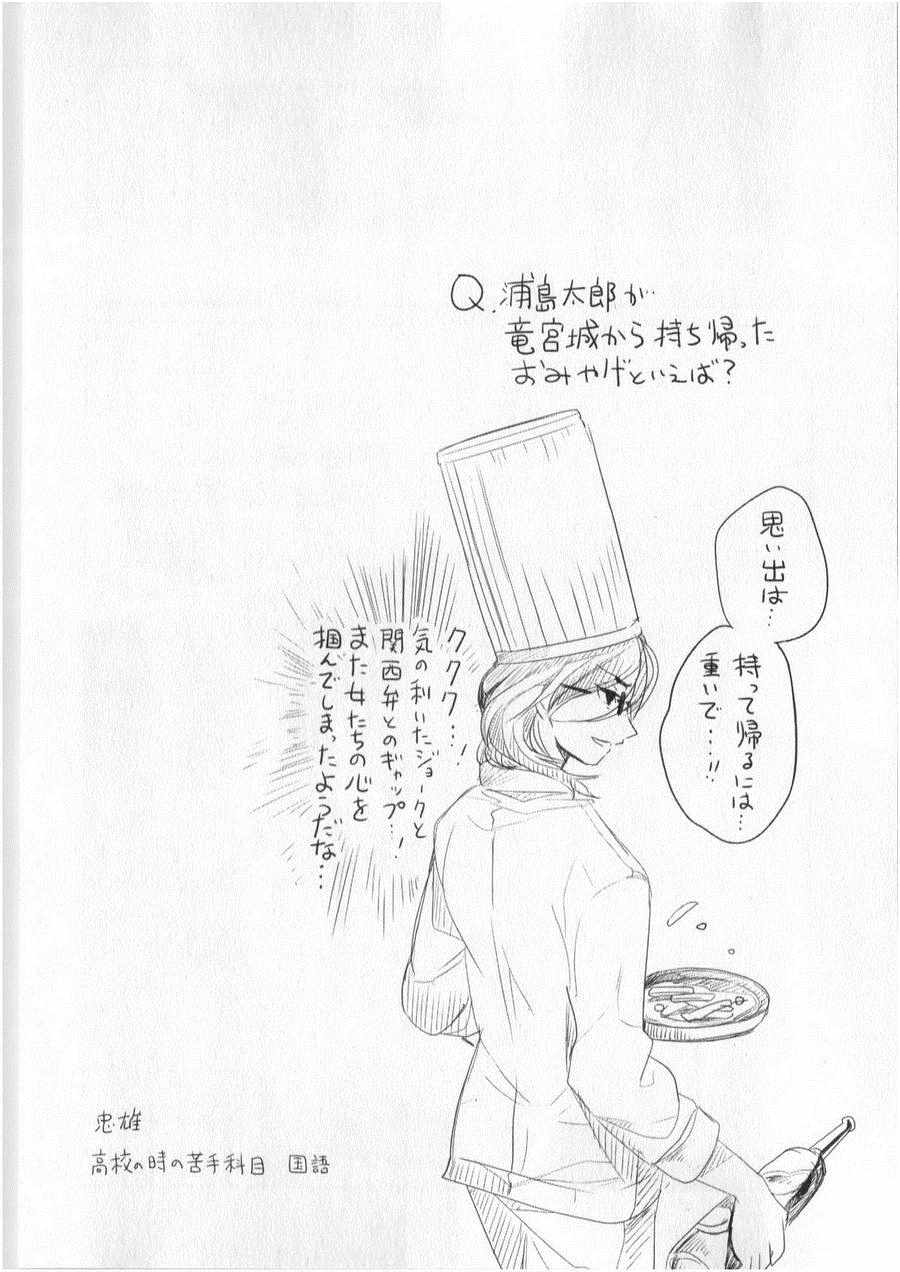 Q.浦島太郎が
竜宮城から持ち帰った
おみやげといえば？
思い出は…
持って帰るには…
重いで……!!
ククク…!
気の利いたジョークと
関西弁とのギャップ…!
また女たちの心を
掴んでしまったようだな…
忠雄
高校の時の苦手科目 国語